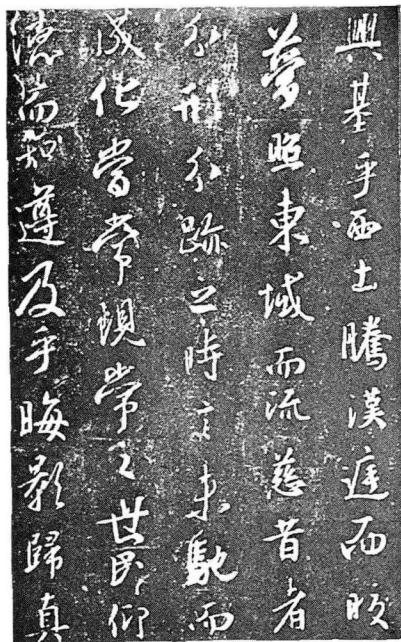 興基乎西土騰漢庭而皎
夢照東域而流慈昔者
分形分跡之時言未馳而
成化當常現常之世民仰
德而知遵及乎晦影歸真